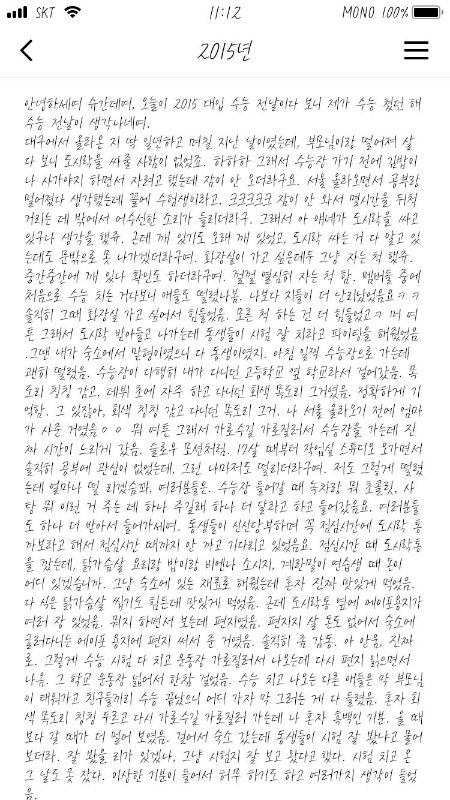 SKT 11:12 MONO 100%
2015년
안녕하세여 슈간데여. 오늘이 2015 대입 수능 전날이다 보니 제가 수능 쳤던 해
수능 전날이 생각나네여.
대구에서 올라온 지 딱 일년하고 며칠 지난 날이였는데, 부모님이랑 떨어져 살
다 보니 도시락을 싸줄 사람이 없었죠. 하하하 그래서 수능장 가기 전에 김밥이
나 사가야지 하면서 자려고 했는데 잠이 안 오더라구요. 서울 올라오면서 공부랑
멀어졌다 생각했는데 꼴에 수험생이라고. ㅋㅋㅋㅋㅋ 잠이 안 와서 몇시간을 뒤척
거리는 데 밖에서 어수선한 소리가 들리더라구. 그래서 아 얘네가 도시락을 싸고
있구나 생각을 했쥬. 근데 깨 있기도 오래 깨 있었고, 도시락 싸는 거 다 알고 있
는데도 문밖으로 못 나가겠더라구여. 화장실이 가고 싶은데두 그냥 자는 척 했쥬.
중간중간에 깨 있나 확인도 하더라구여. 껄껄 열심히 자는 척 함. 멤버들 중에
처음으로 수능 치는 거다보니 애들도 떨렸나봄. 나보다 지들이 더 난리났었음요ㅋㅋ
솔직히 그때 화장실 가고 싶어서 힘들었음. 모른 척 하는 건 더 힘들었고ㅋ 머 여
튼 그래서 도시락 받아들고 나가는데 동생들이 시험 잘 치라고 파이팅을 해줬었음
.그땐 내가 숙소에서 맏형이였으니 다 동생이였지. 아침 일찍 수능장으로 가는데
괜히 떨렸음. 수능장이 다행히 내가 다니던 고등학교 옆 학교라서 걸어갔음. 목
도리 칭칭 감고. 데뷔 초에 자주 하고 다니던 회색 목도리 그거였음. 정확하게 기
억함. 그 있잖아, 회색 칭칭 감고 다니던 목도리 그거. 나 서울 올라오기 전에 엄마
가 사준 거였음ㅇㅇ 뭐 여튼 그래서 가로수길 가로질러서 수능장을 가는데 진
짜 시간이 느리게 감음. 슬로우 모션처럼. 17살 때부터 작업실 스튜디오 오가면서
솔직히 공부에 관심이 없었는데, 그런 나마저도 떨리더라구여. 저도 그렇게 떨렸
는데 얼마나 떨 리겠슴과, 여러분들은. 수능장 들어갈 때 녹차랑 뭐 초콜릿, 사
탕 뭐 이런 거 주는 데 하나 주길래 하나 더 달라고 하고 들어갔음요. 여러분들
도 하나 더 받아서 들어가세여. 동생들이 신신당부하며 꼭 점심시간에 도시락 통
까보라고 해서 점심시간 때까지 안 까고 기다리고 있었음요. 점심시간 때 도시락통
을 깠는데, 닭가슴살 요리랑 밥이랑 비엔나 소시지, 계란말이 연습생 때 돈이
어디 있겠습니까. 그냥 숙소에 있는 재료로 해줬는데 혼자 진짜 맛있게 먹었음.
다 식은 닭가슴살 씹기도 힘든데 맛있게 먹었음. 근데 도시락통 옆에 에이포용지가
여러 장 있었음. 뭐지 하면서 보는데 편지였음. 편지지 살 돈도 없어서 숙소에
굴러다니는 에이포 용지에 편지 써서 준 거였음. 솔직히 좀 감동. 아 안움, 진짜
로. 그렇게 수능 시험 다 치고 운동장 가로질러서 나오는데 다시 편지 읽으면서
나옴. 그 학교 운동장 넓어서 한참 걸었음. 수능 치고 나오는 다른 애들은 막 부모님
이 태워가고 친구들끼리 수능 끝났으니 어디 가자 막 그러는 게 다 들렸음. 혼자 회
색 목도리 칭칭 두르고 다시 가로수길 가로질러 가는데 나 혼자 흑백인 기분. 올 때
보다 갈 때가 더 멀어 보였음. 걸어서 숙소 갔는데 동생들이 시험 잘 봤냐고 물어
보더라. 잘 봤을 리가 있겠나, 그냥 시험지 잘 보고 왔다고 했다. 시험 치고 온
그 날도 못 잤다. 이상한 기분이 들어서 허무 하기도 하고 여러가지 생각이 들었
음.